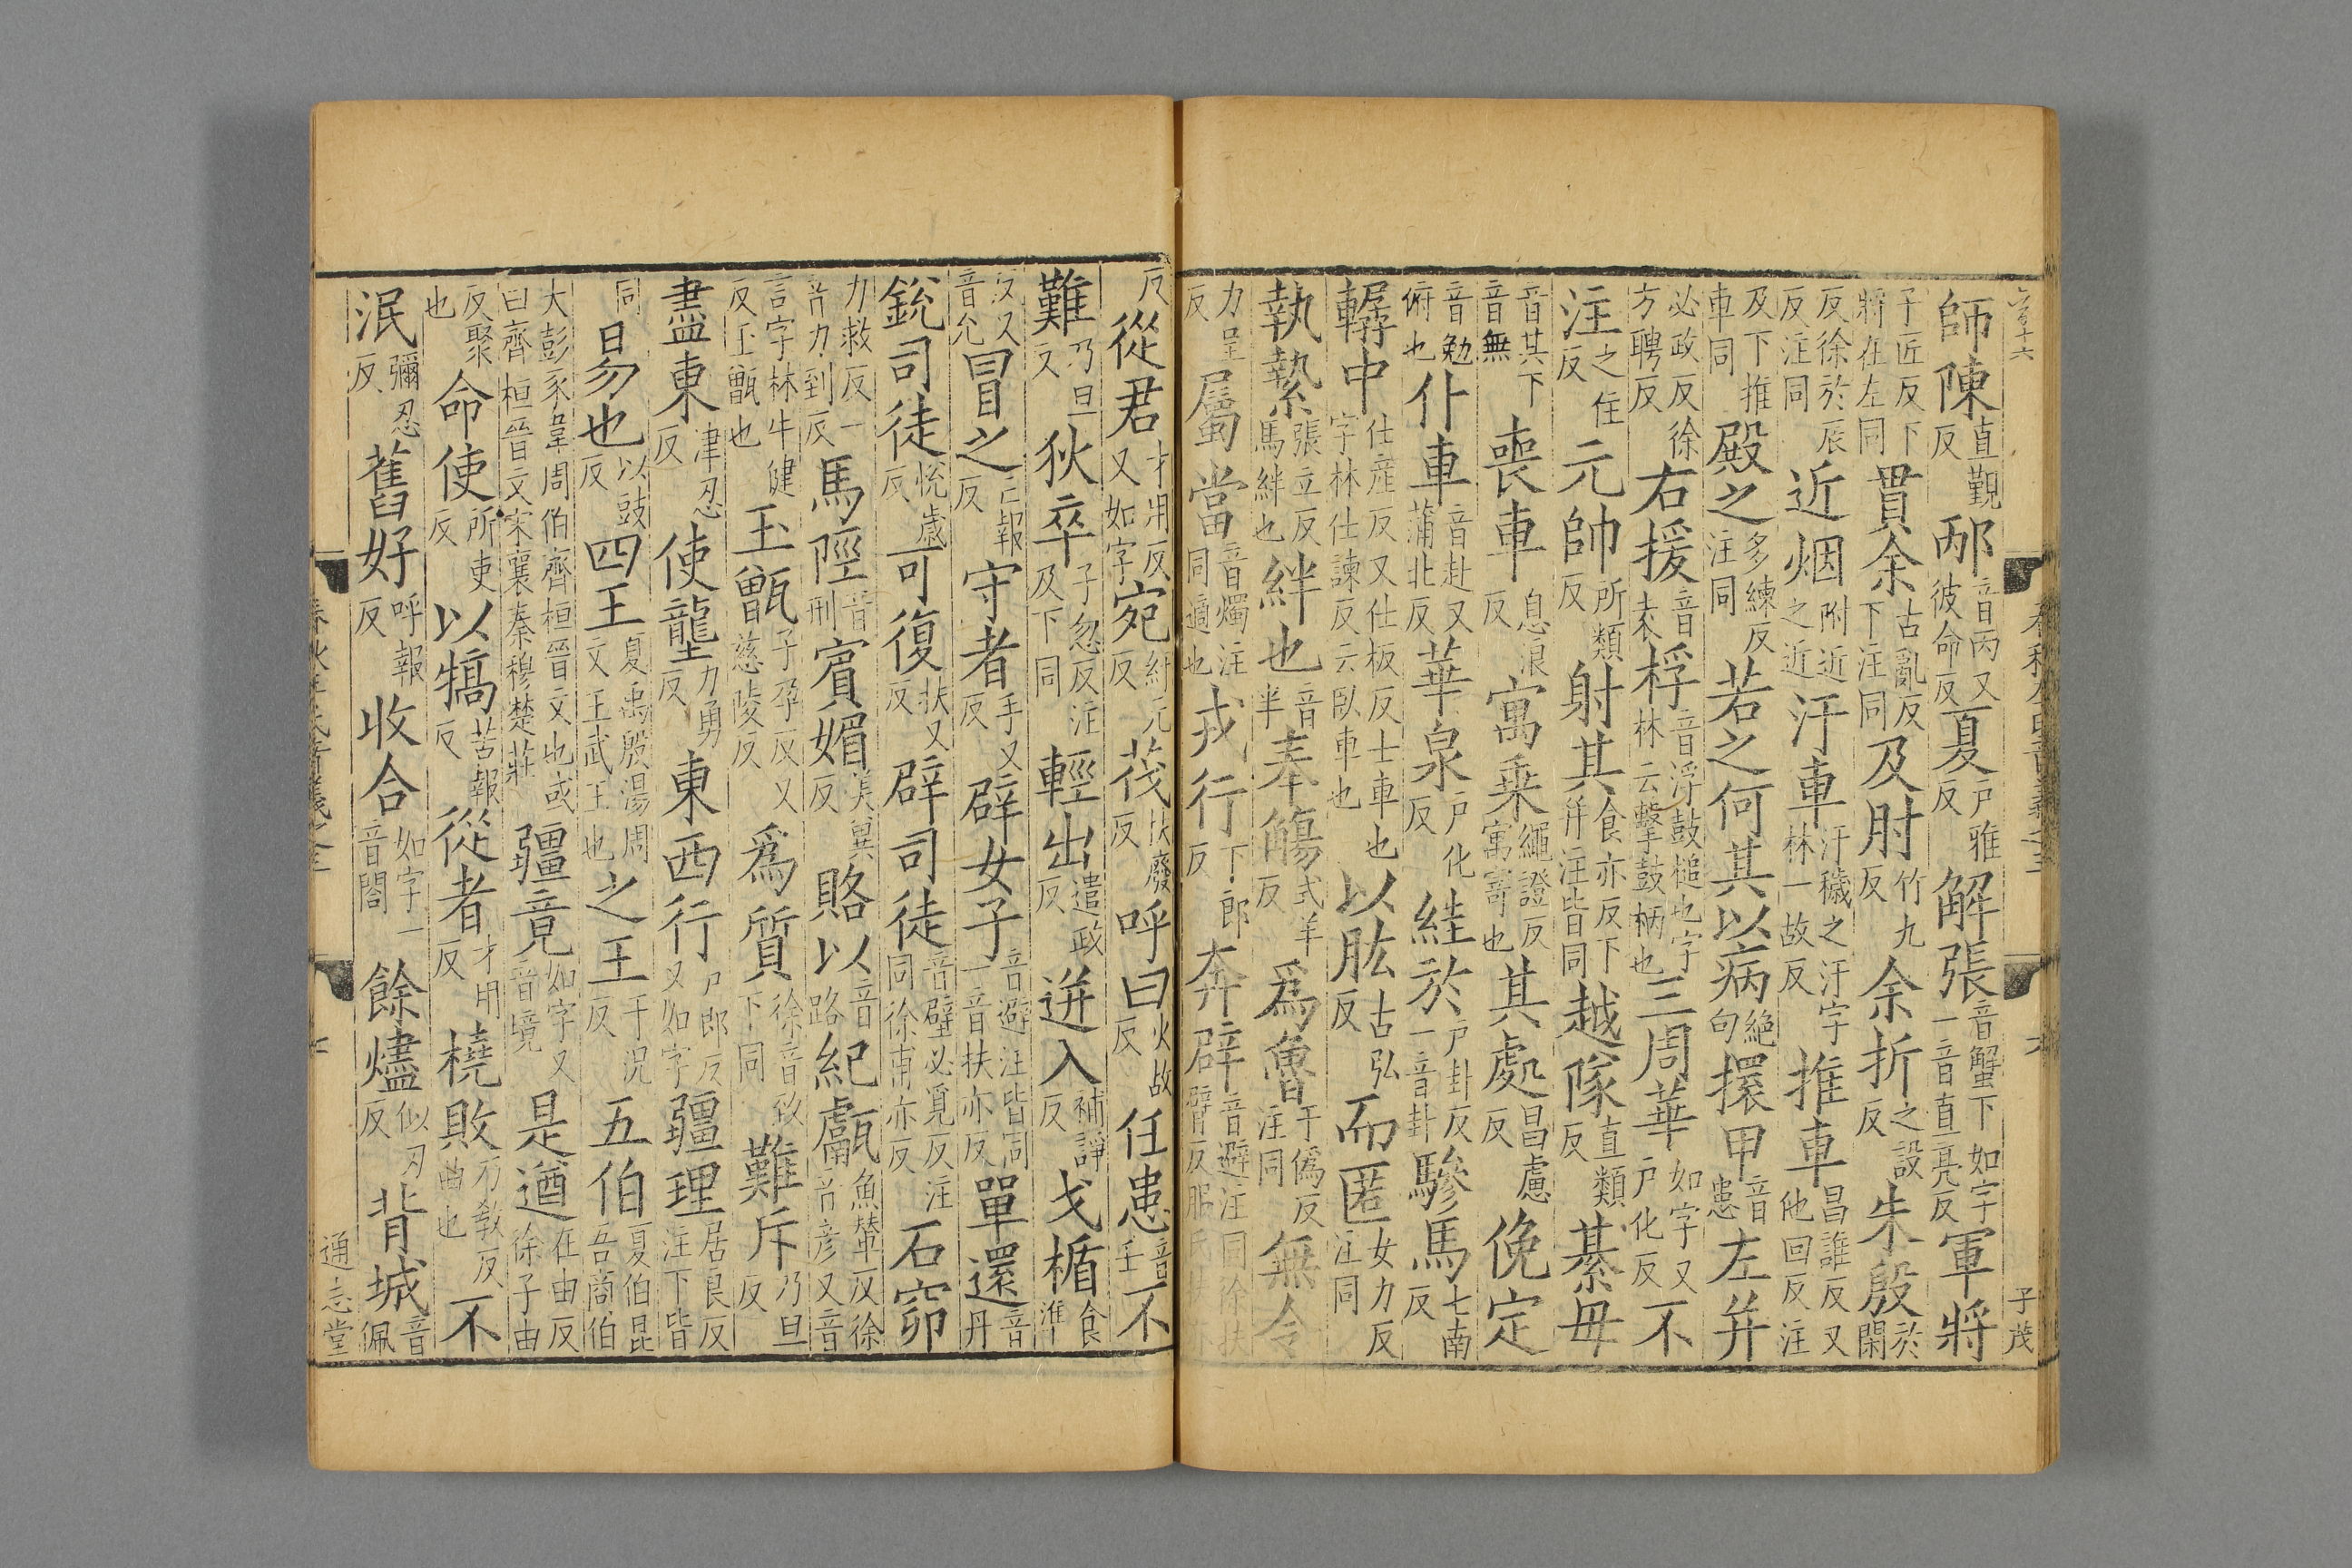 子茂
師陳直覲反邴音丙又彼命反夏戶雅反解張音蟹下如字一音直亮反軍將
子匠反下將在左同貫余古亂反下注同及肘竹九反余折之設反朱殷於閑
反徐於辰反注同近烟附近之近汙車汙穢之汙字林一故反推車昌誰反又他回反注
及下推車同殿之多練反注同若之何其以病絕句擐甲音患左并
必政反徐方聘反右援音袁桴音浮鼓槌也字林云擊鼓柄也三周華如字又戶化反不
注之住反元帥所類反射其食亦反下并注皆同越隊直類反綦毋
音其下音無喪車息浪反寓乘繩證反寓寄也其處昌慮反俛定
音勉俯也仆車音赴又蒲北反華泉戶化反絓於戶卦反一音卦驂馬七南反
轏中仕產反又仕板反士車也字林仕諫反云臥車也以肱古弘反而匿女力反注同
執縶張立反馬絆也絆也音半奉觴式羊反爲魯于僞反注同無令
力呈反屬當音燭注同適也戎行下郎反奔辟音避注同徐扶臂反服氏扶
反從君才用反又如字宛紆元反茷扶廢反呼曰火故反任患音壬不
難乃旦反狄卒子忽反注及下同輕出遣政反迸入補諍反戈楯食準
反又音允冒之亡報反守者手又反辟女子音避注皆同一音扶亦反單還音丹
銳司徒悅歲反可復扶又反辟司徒音壁必覓反注同徐甫亦反石窌
力救反一音力到反馬陘音刑賓媚美冀反賂以音路紀甗魚輦反徐音彥又音
言字林牛健反玉甑也玉甑子孕反又慈陵反爲質徐音致下同難斥乃旦反
盡東津忍反使壟力勇反東西行戶郎反又如字疆理居良反注下皆
同易也以豉反四王夏禹殷湯周文王武王也之王于況反五伯夏伯昆吾商伯
大彭豕韋周伯齊桓晉文也或曰齊桓晉文宋襄秦穆楚莊疆竟如字又音境是遒在由反徐子由
反聚也命使所吏反以犒苦報反從者才用反橈敗乃敎反曲也不
泯彌忍反舊好呼報反收合如字一音閤餘燼似刃反背城音佩
通志堂